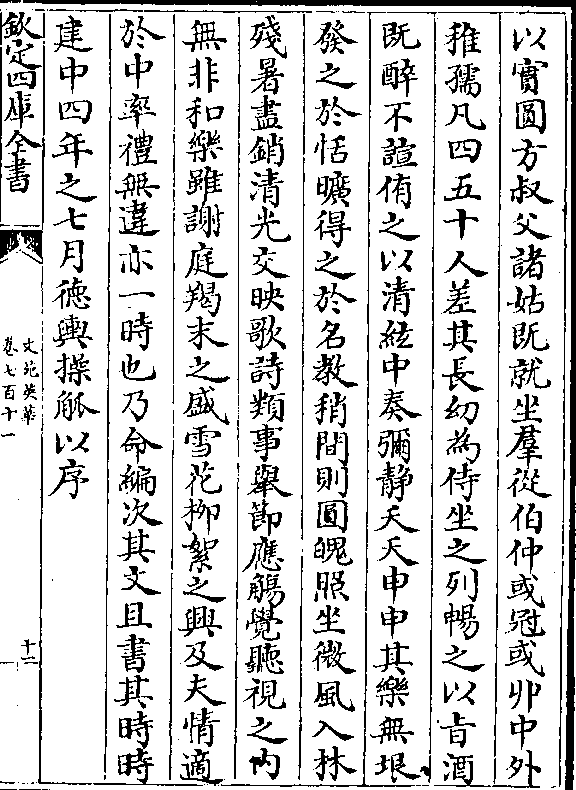 以實圓方叔父諸姑既就坐羣從伯仲或冠或丱中外
稚孺凡四五十人差其長幼為侍坐之列暢之以旨酒
既醉不諠侑之以清絃中奏彌静夭夭申申其樂無垠
發之於恬曠得之於名教稍間則圓魄照坐微風入林
殘暑盡銷清光交映歌詩類事舉節應觴覺聽視之内
無非和樂雖謝庭羯末之盛雪花柳絮之興及夫情適
於中率禮無違亦一時也乃命編次其文且書其時時
建中四年之七月徳輿操觚以序
欽定四庫全書
文苑英華
卷七百十一
十二